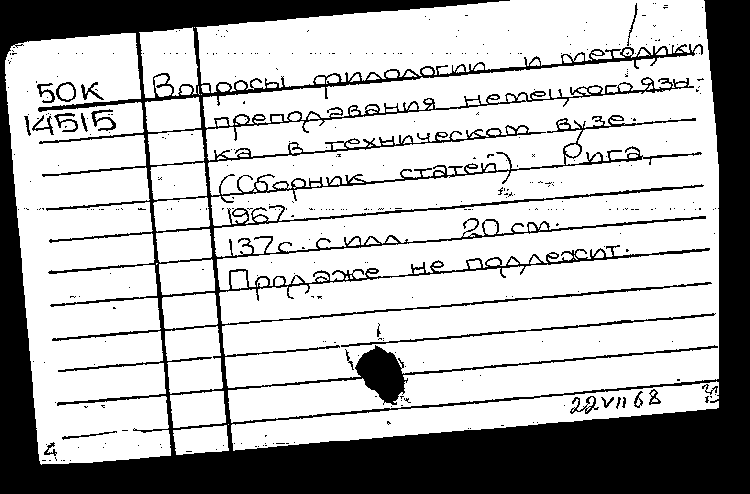 50К Вопросы филологии и методики
14515 преподавания немецкого язы-
ка в техническом вузе.
(Сборник статей) Рига,
1967.
137с. с илл. 20 см.
Продаже не подлежит.
22 VII 68
4